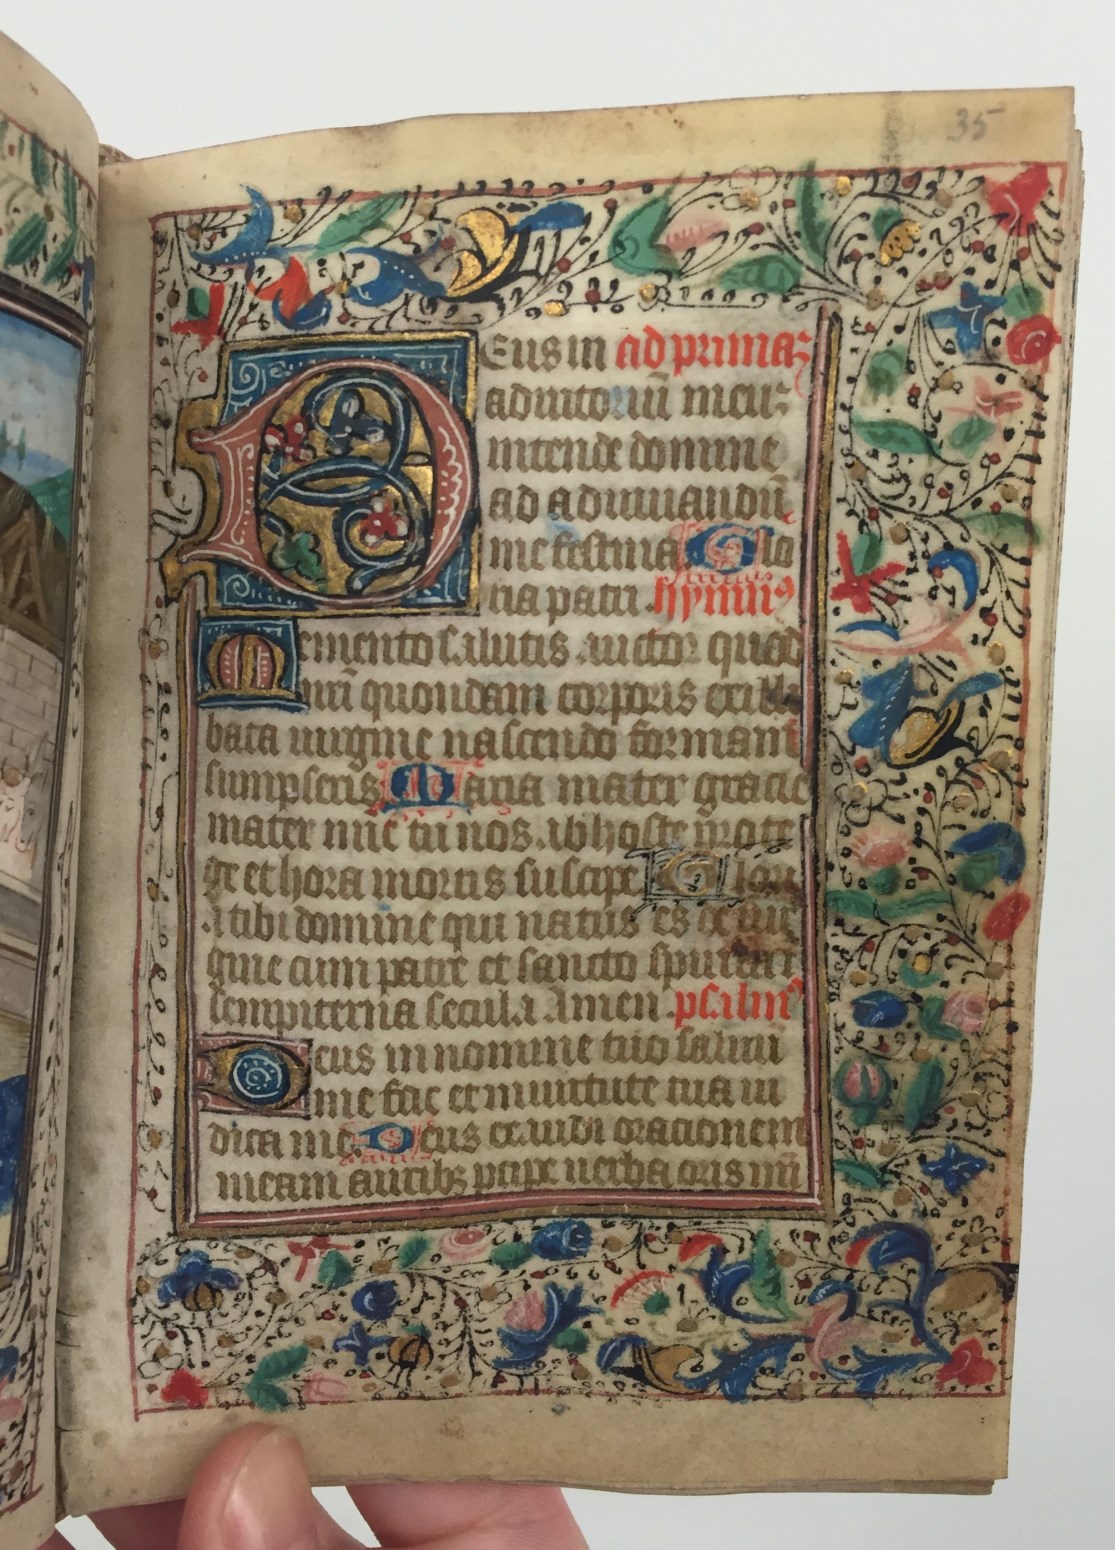 35
Deus in ad primaz
adiutoriū meuz
intende domine
ad adiuuandū
me festina Glo
ria patri. hymn9
Memento salutis auctor quod
nr̄i quondam corporis ex illi
bata uirgine nascendo formam
sumpseris Maria mater gracie
mater mīe tu nos ab hoste prote
ge et hora mortis suscipe Glori
a tibi domine qui natus es de uir
gine cum patre et sancto spiritu ī
sempiterna secula Amen. psalm9
Deus in nomine tuo saluū
me fac et in uirtute tua iu
dica me Deus exaudi orationem
meam auribz pcipe uerba oris mī